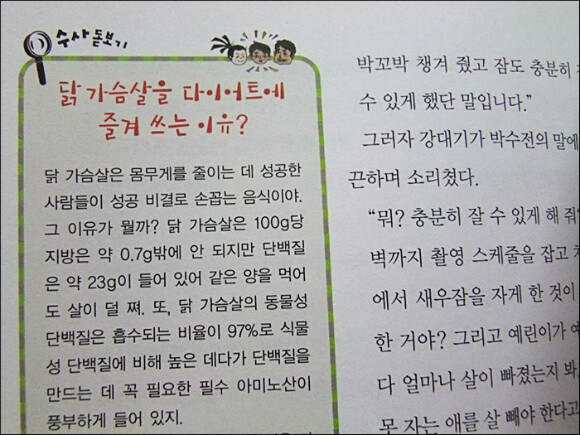 수사 돋보기
닭 가슴살을 다이어트에
즐겨 쓰는 이유?
닭 가슴살은 몸무게를 줄이는 데 성공한
사람들이 성공 비결로 손꼽는 음식이야.
그 이유가 뭘까? 닭 가슴살은 100g당
지방은 약 0.7g밖에 안 되지만 단백질
은 약 23g이 들어 있어 같은 양을 먹어
도 살이 덜 쪄. 또, 닭 가슴살의 동물성
단백질은 흡수되는 비율이 97%로 식물
성 단백질에 비해 높은 데다가 단백질을
만드는 데 꼭 필요한 필수 아미노산이
풍부하게 들어 있지.
박꼬박 챙겨 줬고 잠도 충분히
수 있게 했단 말입니다.”
그러자 강대기가 박수전의 말에
끈하며 소리쳤다.
“뭐? 충분히 잘 수 있게 해 줘
벽까지 촬영 스케줄을 잡고
에서 새우잠을 자게 한 것이
한 거야? 그리고 예린이가
다 얼마나 살이 빠졌는지 봐
못 자는 애를 살 빼야 한다고